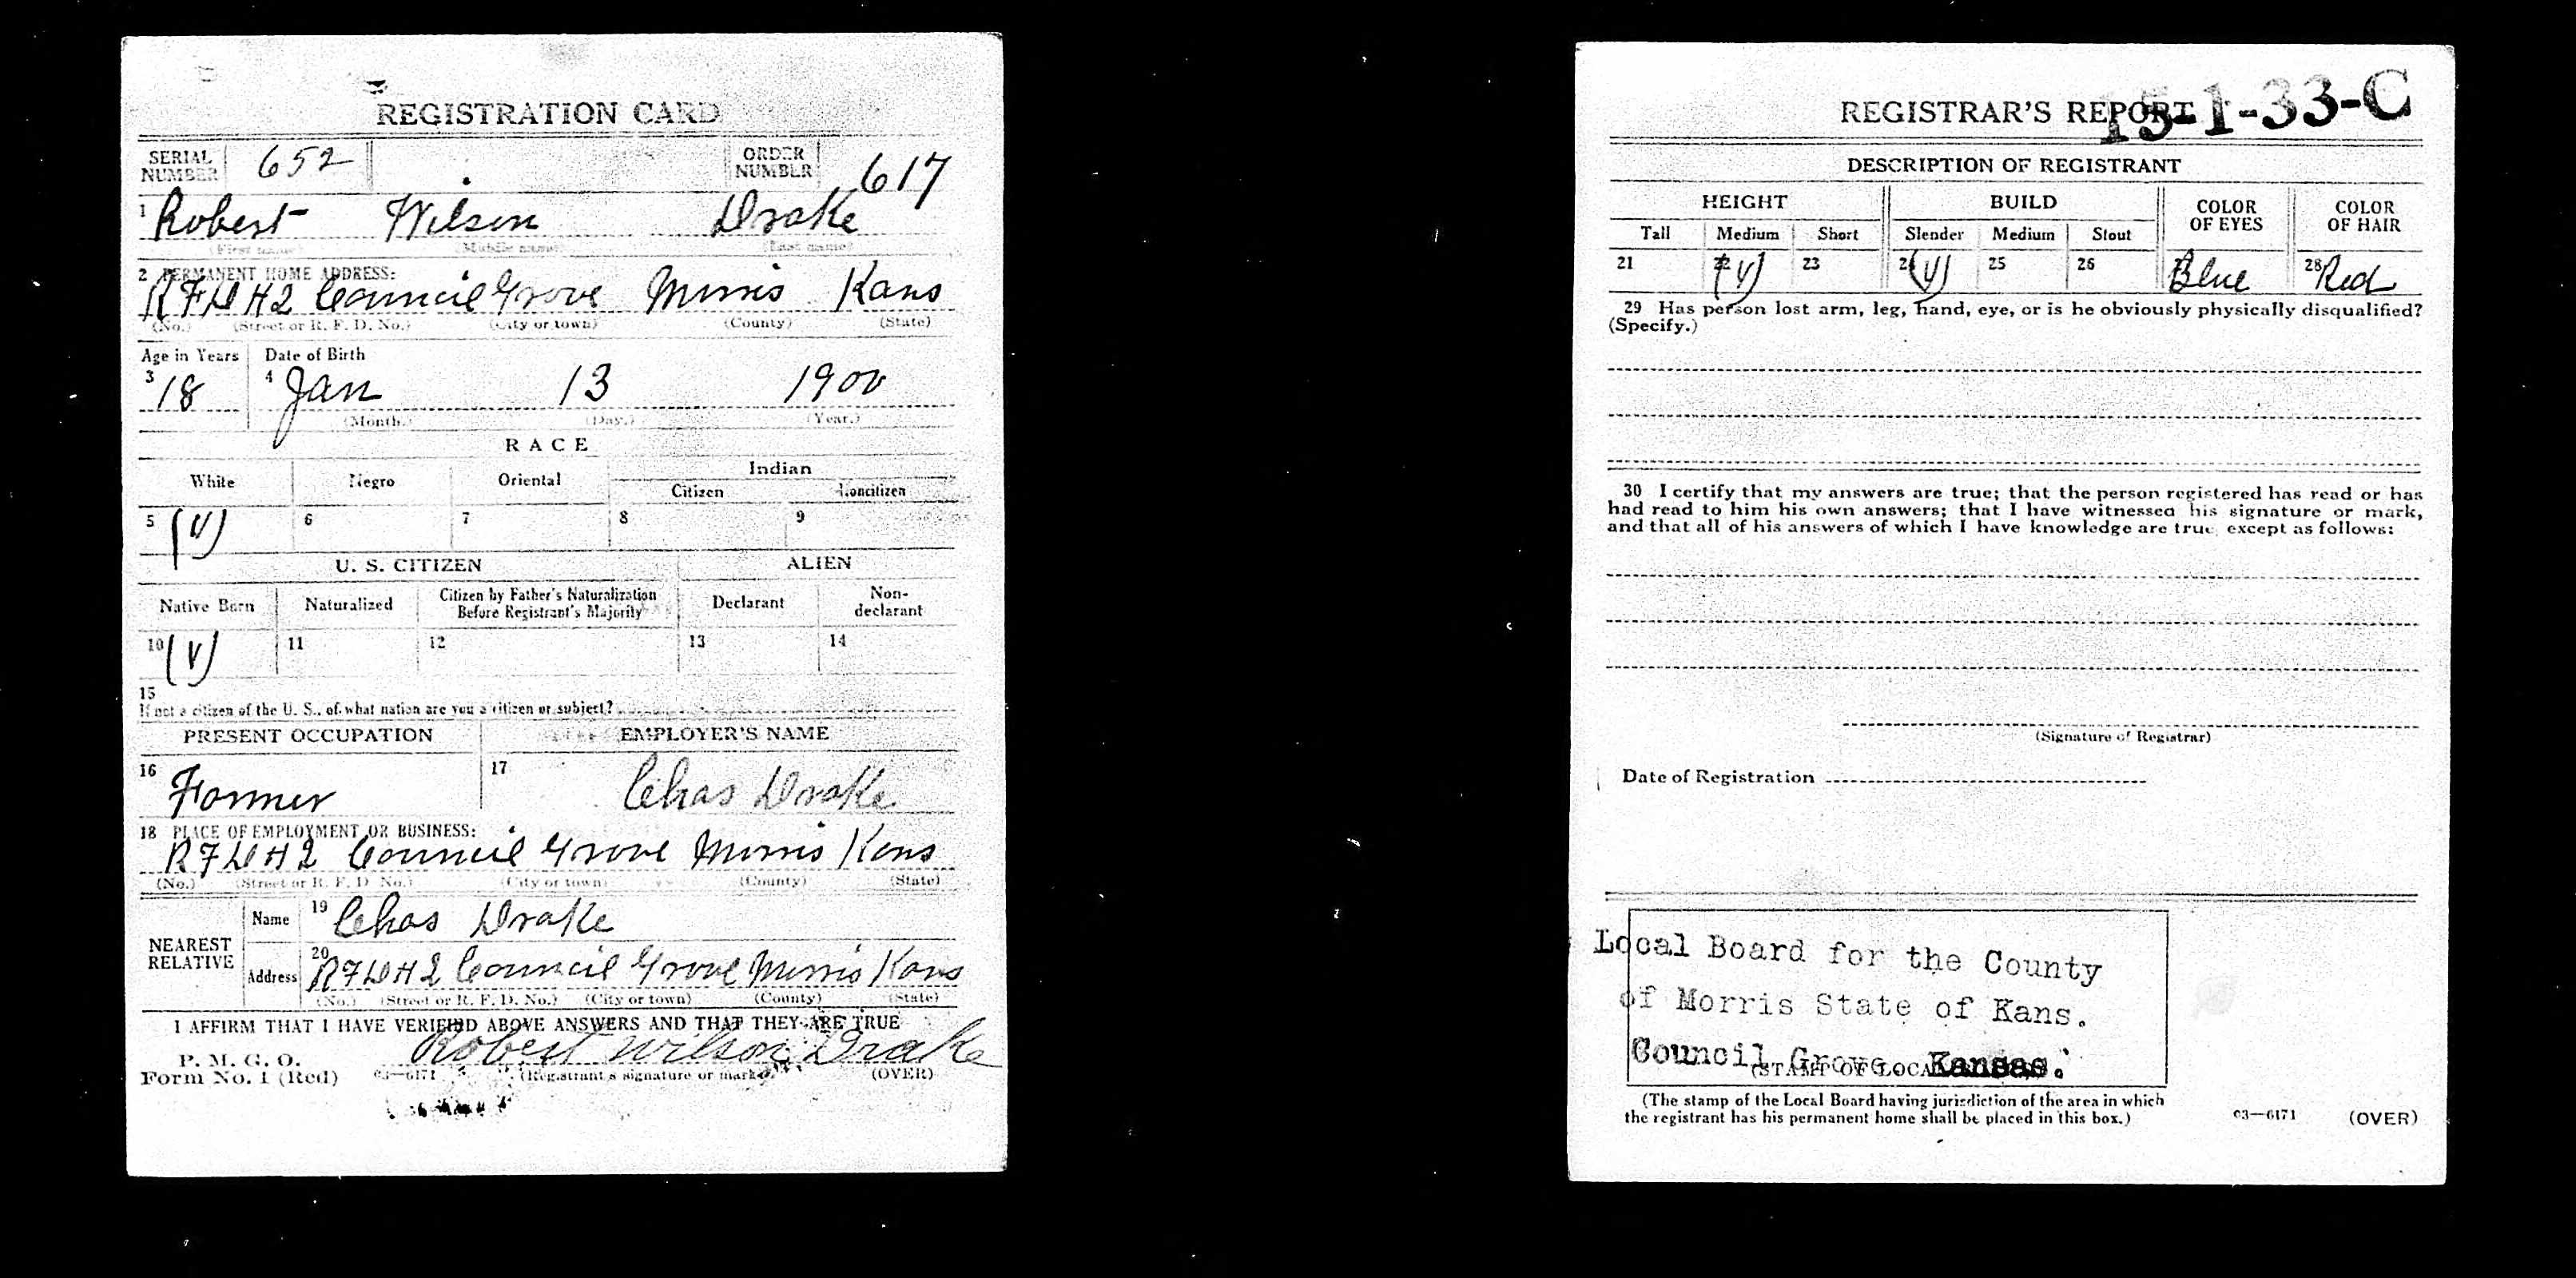 REGISTRATION CARD
SERIAL NUMBER 652 ORDER NUMBER 617
1 Robert Wilson Drake
(First name) (Middle name) (Last name)
2 PERMANENT HOME ADDRESS:
RFD #2 Council Grove Morris Kans
(No.) (Street or R. F. D. No.) (City or town) (County) (State)
Age in Years Date of Birth
3 18 4 Jan 13 1900
(Month.) (Day.) (Year.)
RACE
White Negro Oriental Indian
Citizen Noncitizen
5 (V) 6 7 8 9
U. S. CITIZEN ALIEN
Native Born Naturalized Citizen by Father's Naturalization Before Registrant's Majority Declarant Non-declarant
10 (V) 11 12 13 14
15
If not a citizen of the U. S., of what nation are you a citizen or subject?
PRESENT OCCUPATION EMPLOYER'S NAME
16 Farmer 17 Chas Drake
18 PLACE OF EMPLOYMENT OR BUSINESS:
RFD #2 Council Grove Morris Kans
(No.) (Street or R. F. D. No.) (City or town) (County) (State)
NEAREST RELATIVE Name 19 Chas Drake
Address 20 RFD #2 Council Grove Morris Kans
(No.) (Street or R. F. D. No.) (City or town) (County) (State)
I AFFIRM THAT I HAVE VERIFIED ABOVE ANSWERS AND THAT THEY ARE TRUE
P. M. G. O. Robert Wilson Drake
Form No. 1 (Red) 03—6171 (Registrant's signature or mark) (OVER)
REGISTRAR'S REPORT 15-1-33-C
DESCRIPTION OF REGISTRANT
HEIGHT BUILD COLOR OF EYES COLOR OF HAIR
Tall Medium Short Slender Medium Stout
21 22 (V) 23 24 (V) 25 26 Blue 28 Red
29 Has person lost arm, leg, hand, eye, or is he obviously physically disqualified?
(Specify.)
30 I certify that my answers are true; that the person registered has read or has
had read to him his own answers; that I have witnessed his signature or mark,
and that all of his answers of which I have knowledge are true, except as follows:
(Signature of Registrar)
Date of Registration
Local Board for the County
of Morris State of Kans.
Council Grove. Kansas.
(STAMP OF LOCAL
(The stamp of the Local Board having jurisdiction of the area in which
the registrant has his permanent home shall be placed in this box.)
03—6171 (OVER)